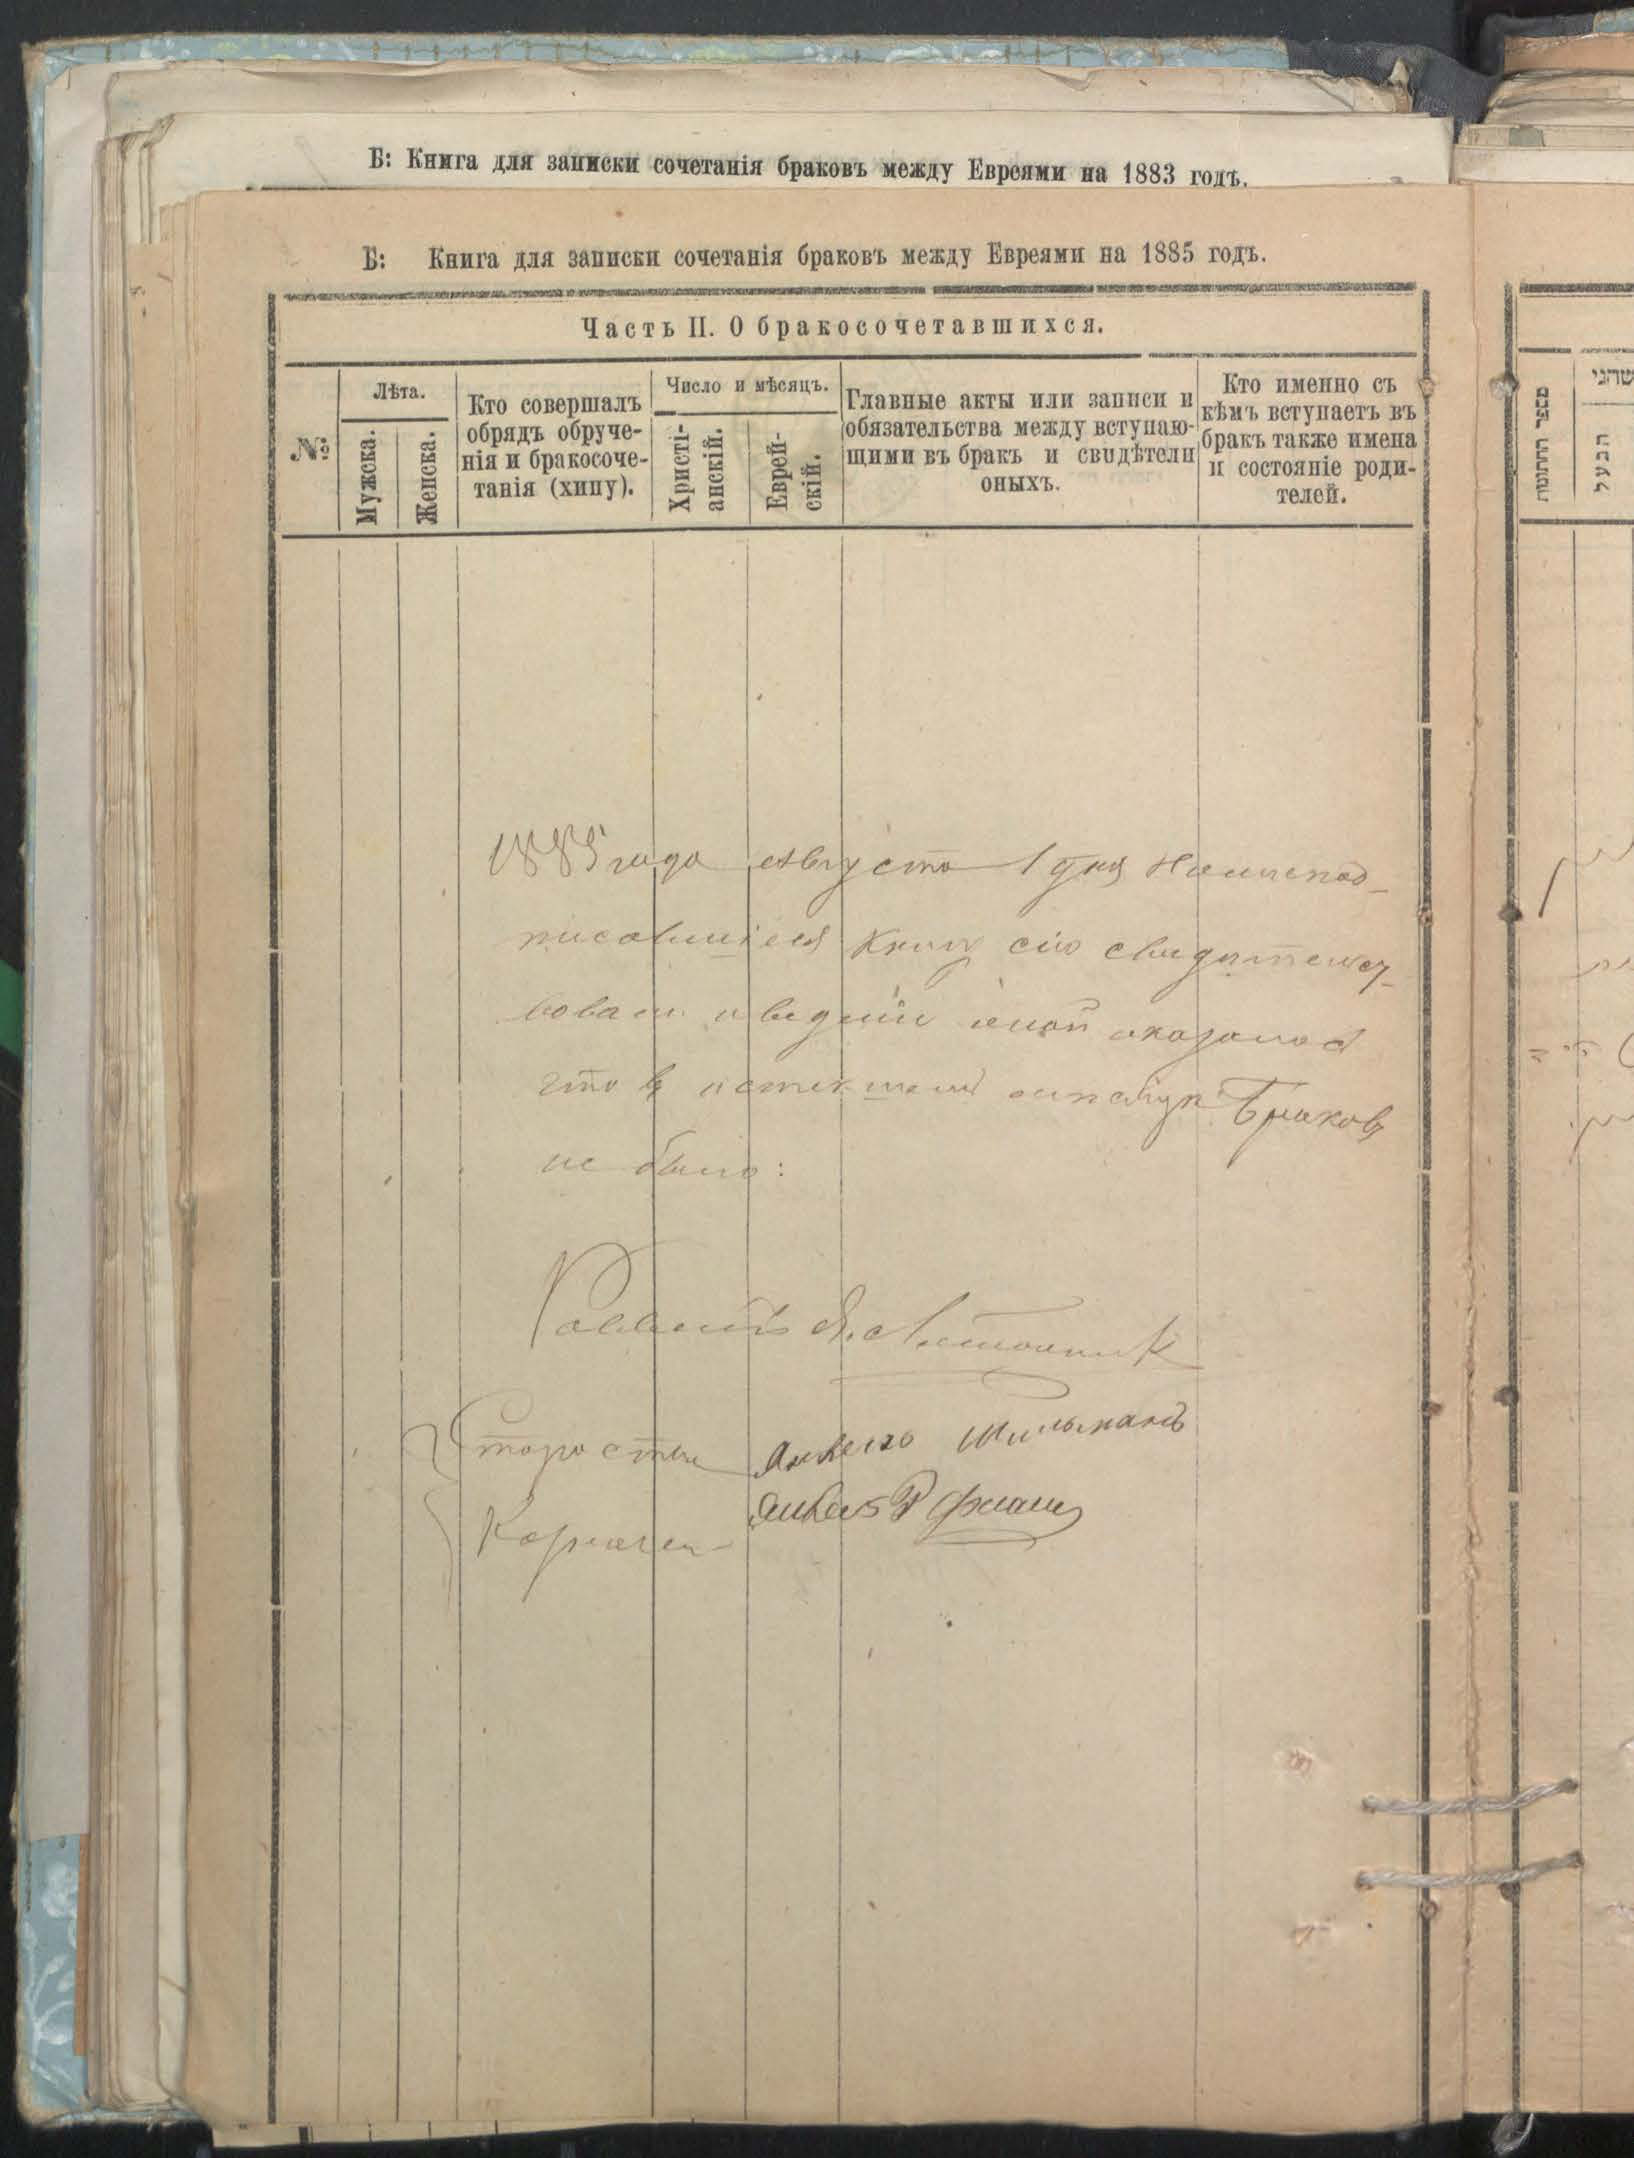 Б: Книга для записки сочетанія браковъ между Евреями на 1883 годъ.
Б: Книга для записки сочетанія браковъ между Евреями на 1885 годъ.
Часть II. О бракосочетавшихся.
№
Лѣта.
Мужска.
Женска.
Кто совершалъ
обрядъ обруче-
нія и бракосоче-
танія (хипу).
Число и мѣсяцъ.
Христі-
анскій.
Еврей-
скій.
Главные акты или записи и
обязательства между вступаю-
щими въ бракъ и свидѣтели
оныхъ.
Кто именно съ
кѣмъ вступаетъ въ
бракъ также имена
и состояніе роди-
телей.
מספר החתונות
שהני
הבעל
1885 года августа 1 дня Нижепод-
писавшіеся книгу сію свидѣтельст-
вовали и оказалось
что въ истекшемъ Браковъ
не было:
Раввинъ
Староста Шильманъ
Казначей